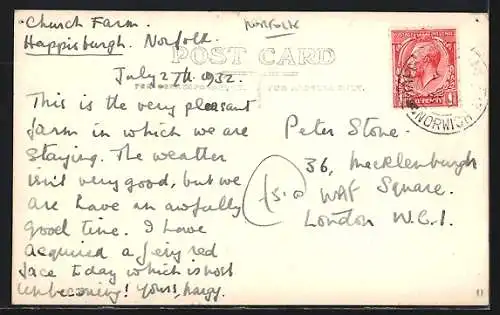 Church Farm.
Happisburgh. Norfolk.
NORFOLK
POST CARD
July 27th. 1932.
This is the very pleasant
farm in which we are
staying. The weather
isn't very good, but we
are have an awfully
good time. I have
acquired a fiery red
face today which is most
unbecoming! Yours,
Peter Stone.
36, Mecklenburgh
Square.
London W.C.1.
£5.0
NORWICH